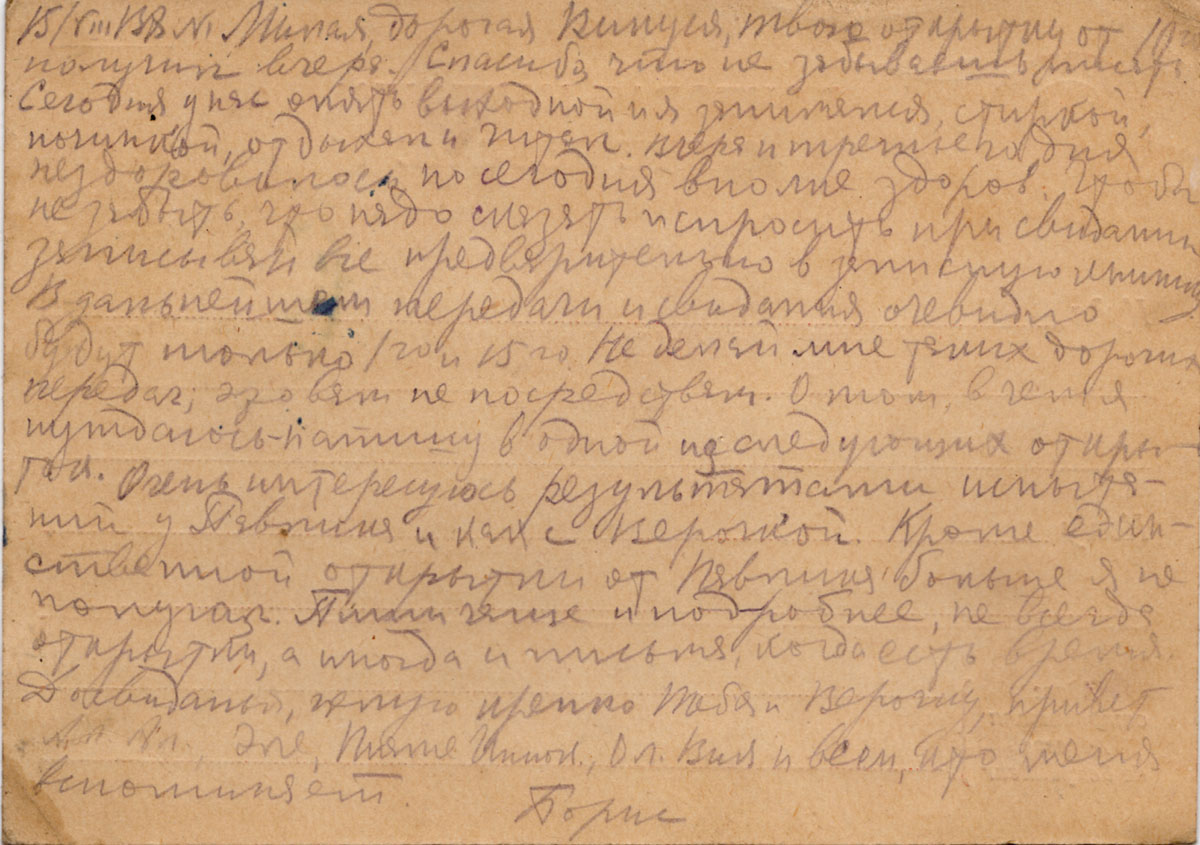 15/VIII 138 № Милая, дорогая Випуся, твою открытку от 10
получил вчера. Спасибо что не забываешь писать.
Сегодня у нас опять выходной и я занимался, стиркой,
починкой, отдыхал и читал. Вчера и третьего дня
нездоровилось, но сегодня вполне здоров. Чтобы
не забыть, что надо сказать и спросить при свидании
записывай все предварительно в записную книжку
В дальнейшем передачи и свидания очевидно
будут только 1го и 15го. Не делай мне таких дорогих
передач, это вам не по средствам. О том, в чем я
нуждаюсь-напишу в одной из следующих откры-
ток. Очень интересуюсь результатами испыта-
ний у Павлика и как с Верочкой. Кроме един-
ственной открытки от Павлика больше я не
получал. Пиши чаще и подробнее, не всегда
открытки, а иногда и письма, когда есть время.
Досвиданья, целую крепко тебя и Верочку, привет
Эле, Ол. и всем, кто меня
вспоминает
Борис